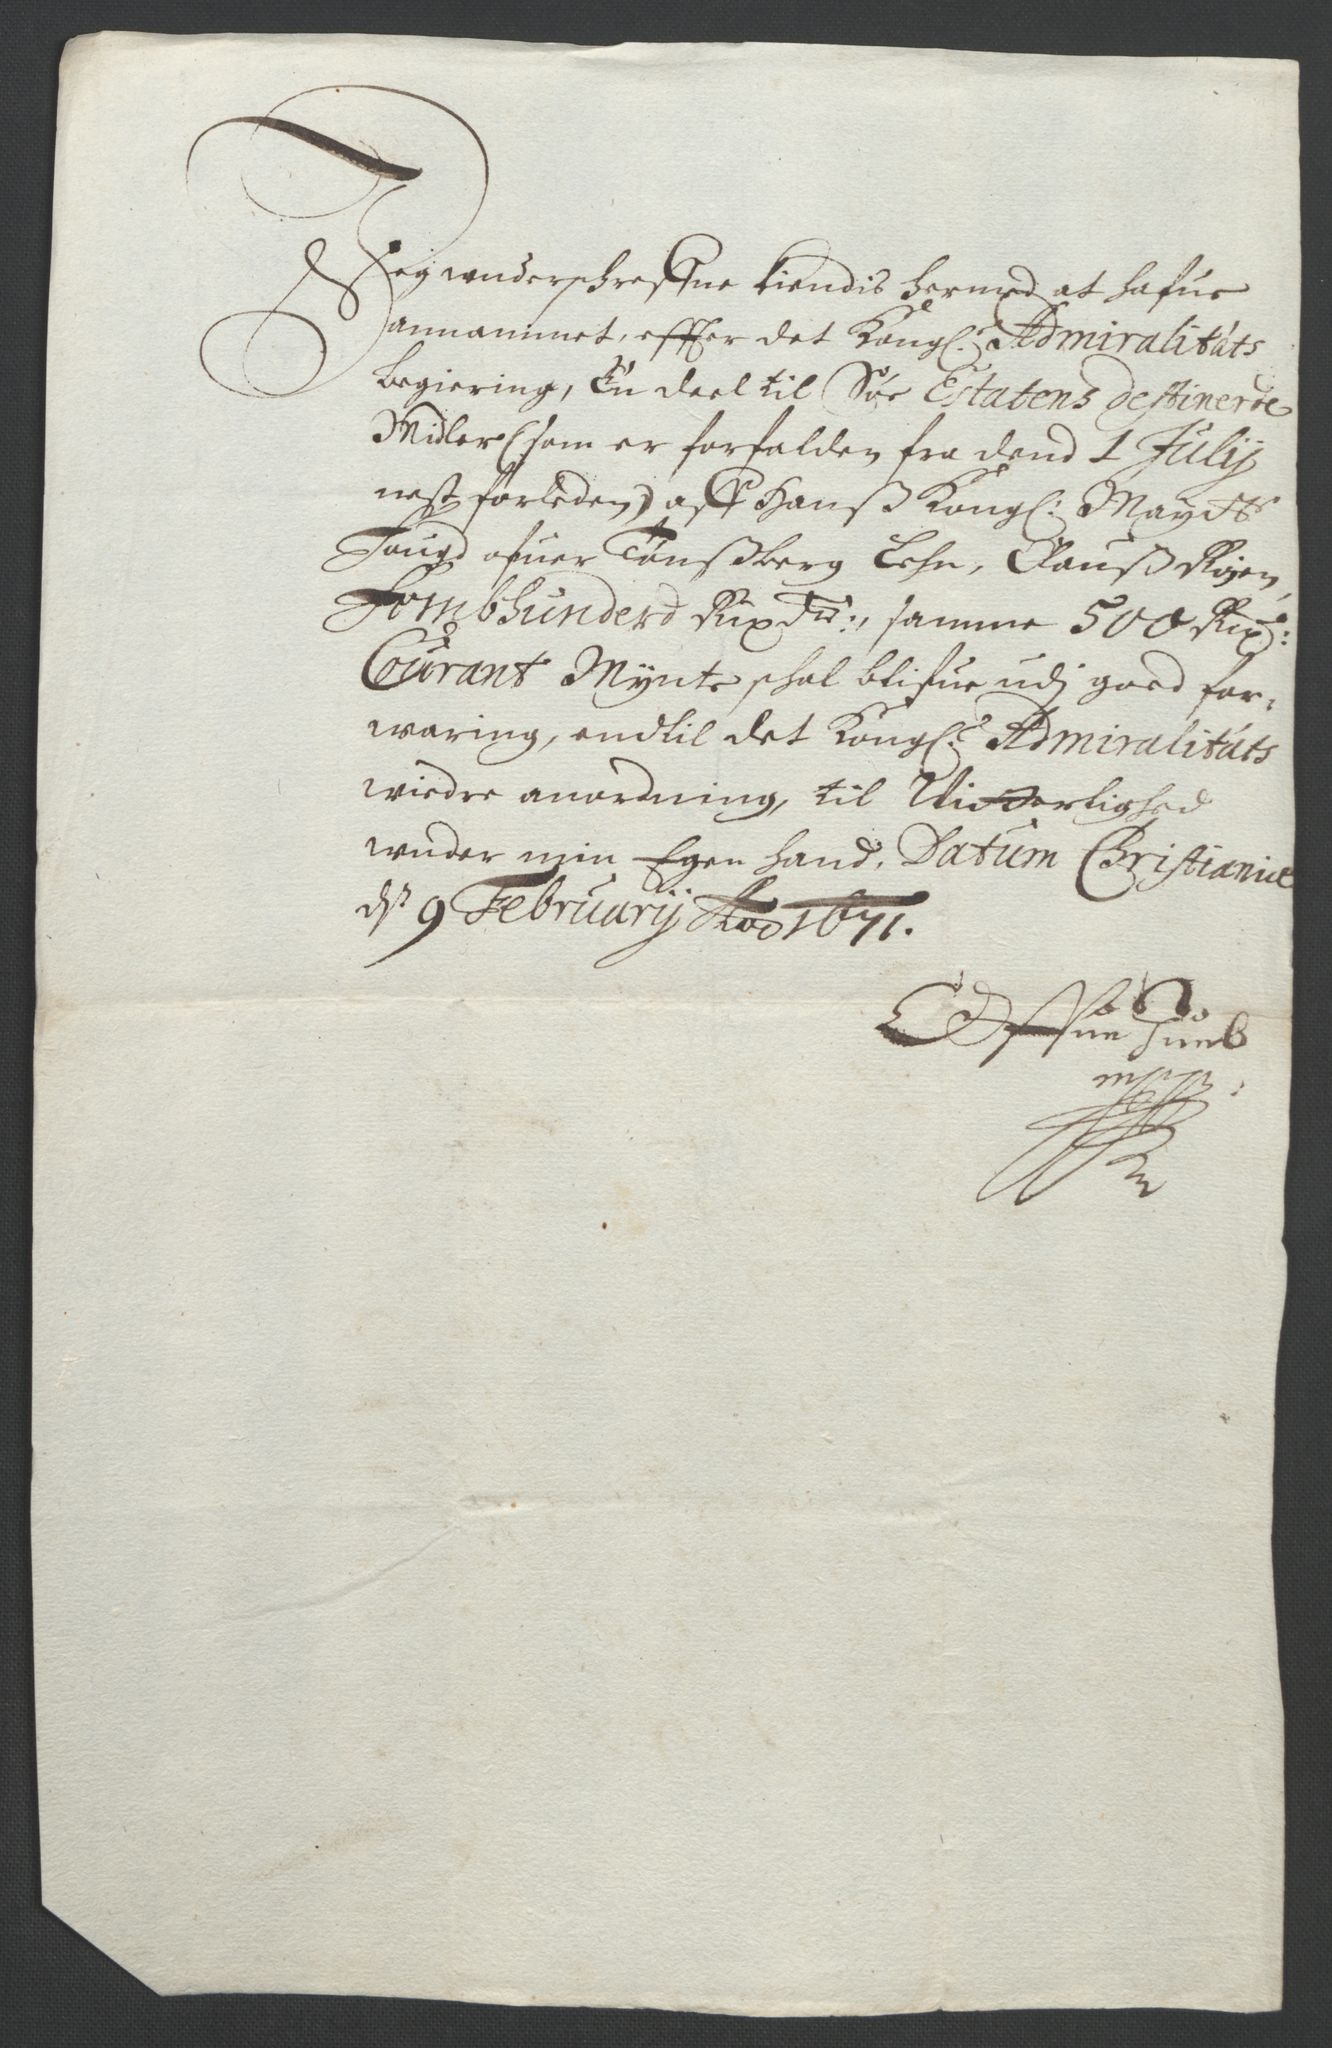 Jeg underschreffne kiendis hermed at hafue
annammet, effter det Kongl: Admiralitäts
begiering, En deel til Søe Estatens destinerde
Midler (som er forfalden fra dend 1 Julij
nest forleden) aff Hanß Kongl: Mayts
Fougd ofuer Tønßberg Lehn, Clauß Røyem,
Fembhunderd Rixdr:, samme 500 Rixd:
Courant Mynte schal blifue udj goed for-
waring, endtil det Kongl: Admiralitäts
widre anordning, til Vitterlighed
under min Egen hand. Datum Christianiæ
dß 9 Februarij Ao 1671.
mppr: